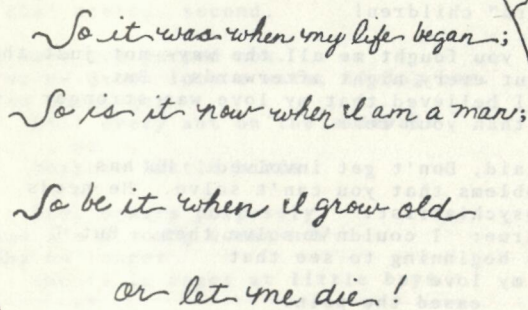 So it was when my life began;
So is it now when I am a man;
So be it when I grow old
or let me die!